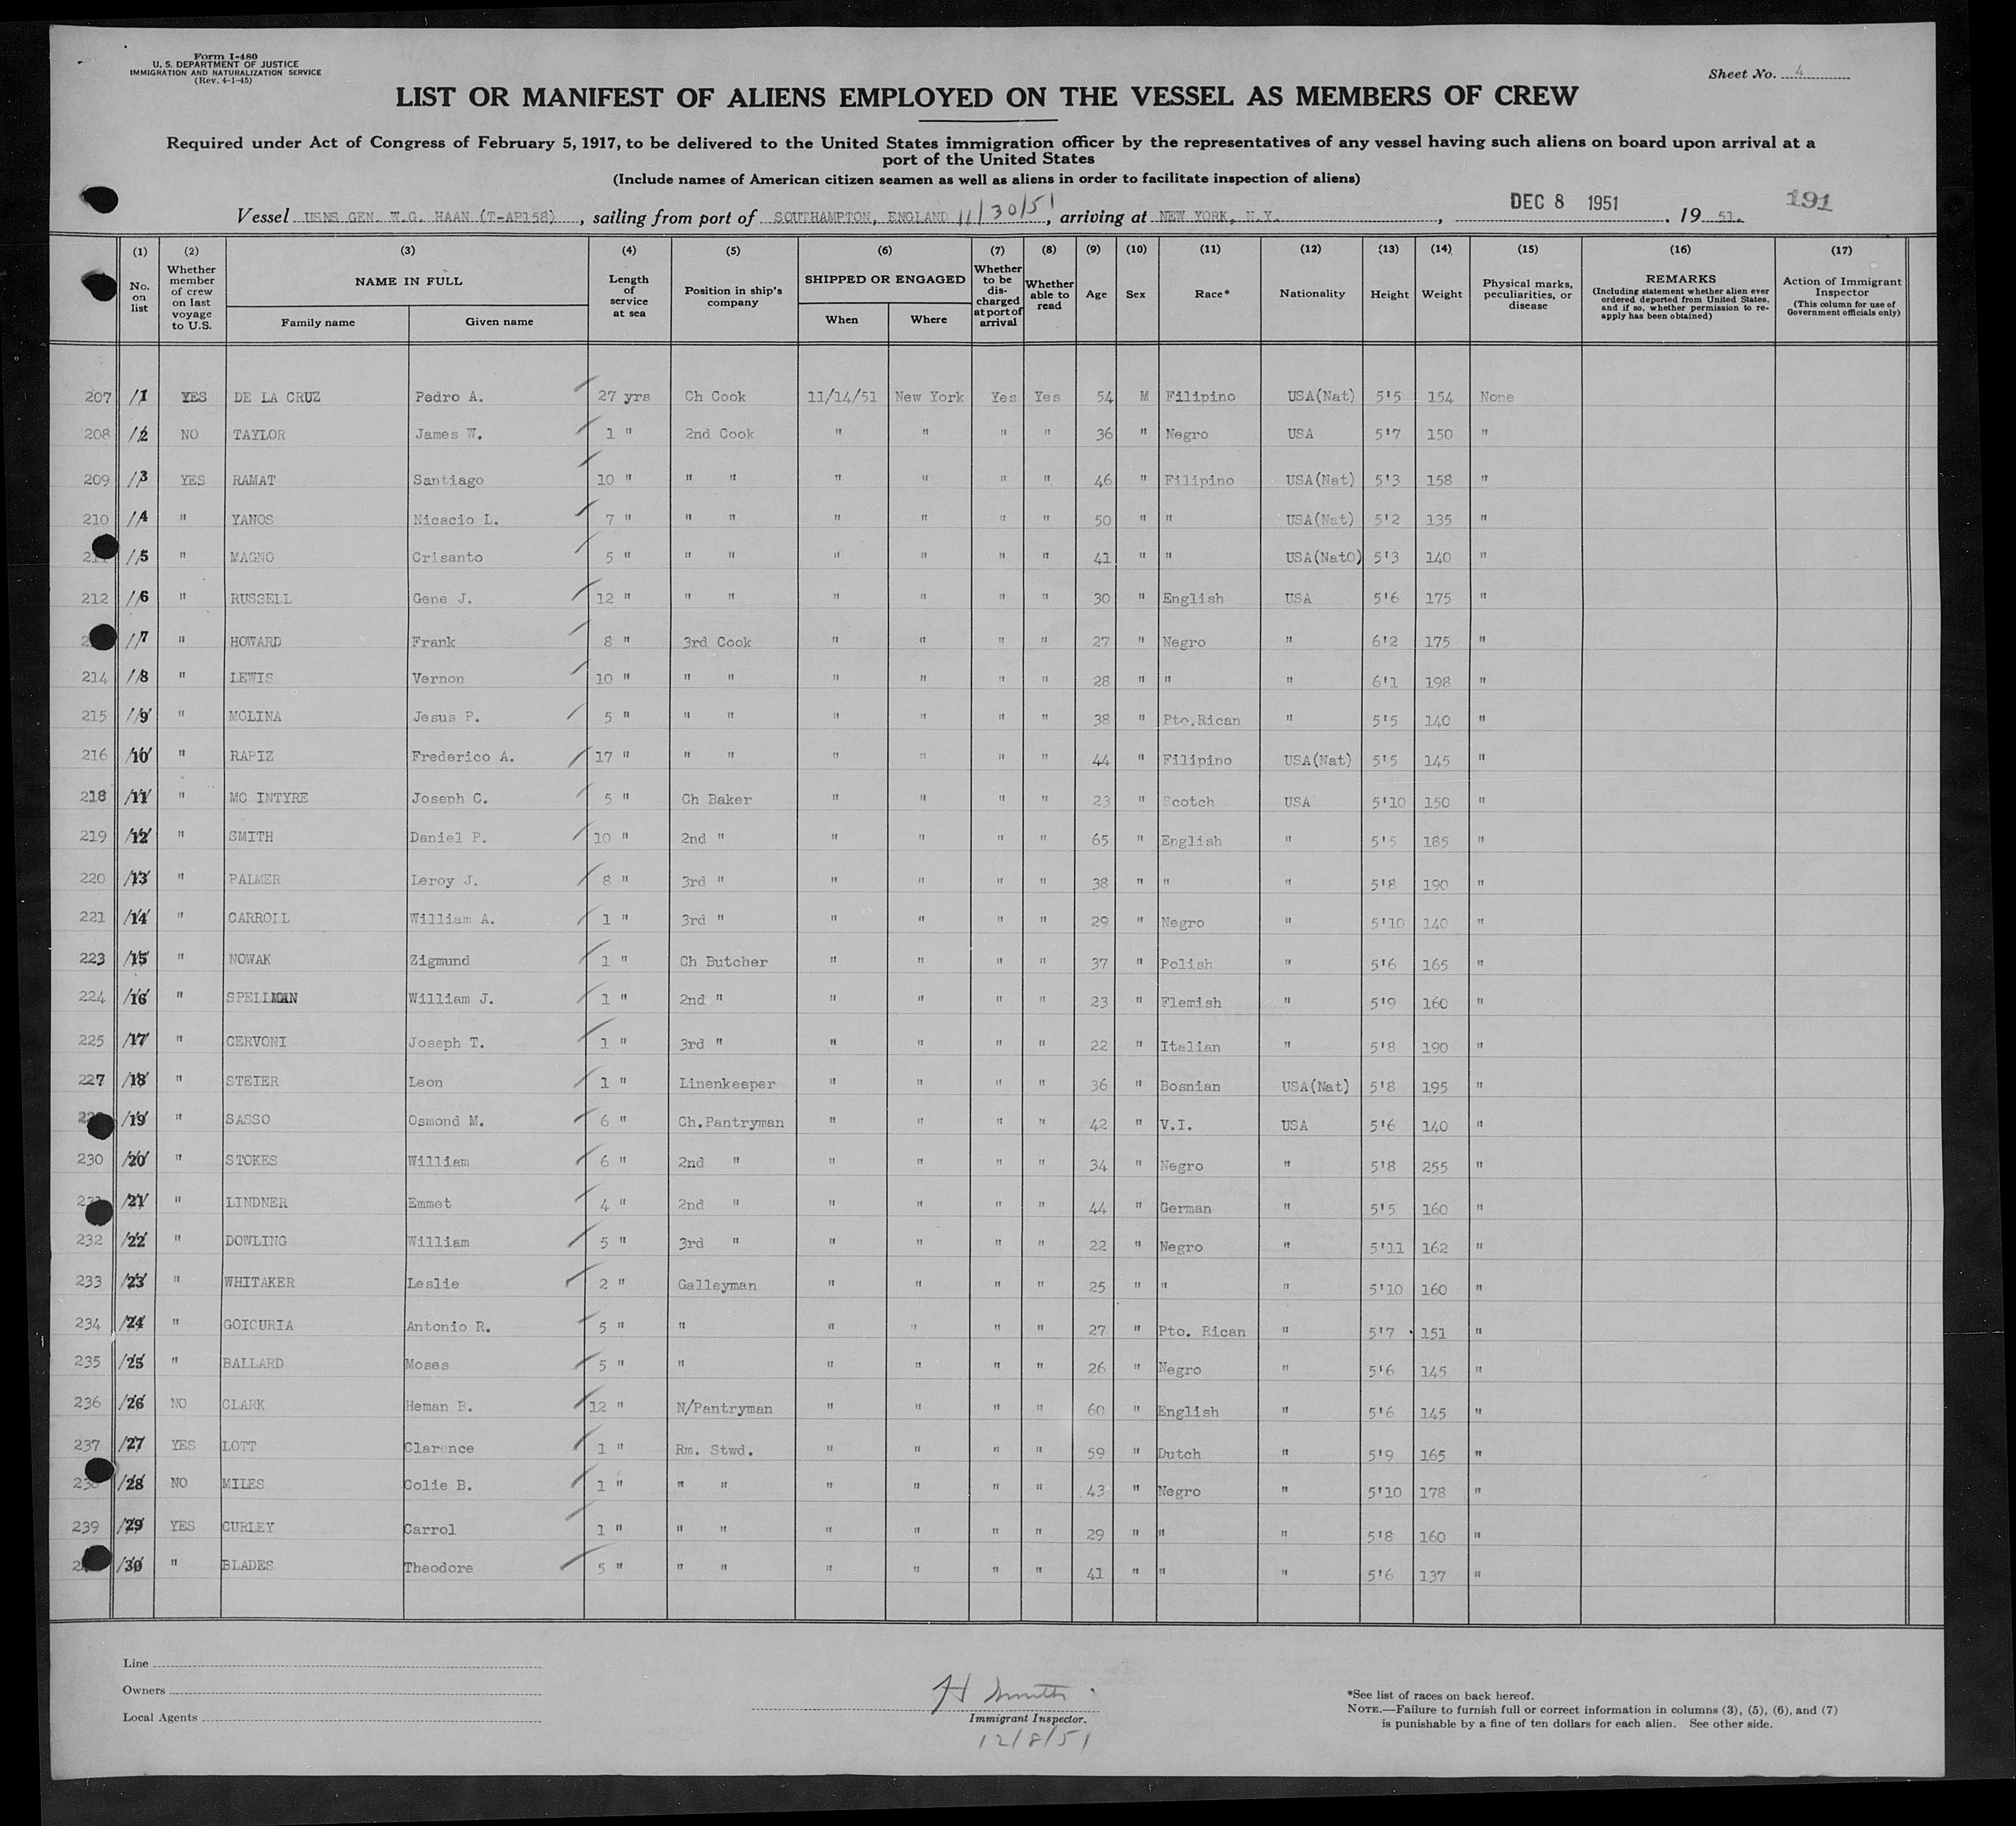 Form I-480
U. S. DEPARTMENT OF JUSTICE
IMMIGRATION AND NATURALIZATION SERVICE
(Rev. 4-1-45)
Sheet No. 4
LIST OR MANIFEST OF ALIENS EMPLOYED ON THE VESSEL AS MEMBERS OF CREW
Required under Act of Congress of February 5, 1917, to be delivered to the United States immigration officer by the representatives of any vessel having such aliens on board upon arrival at a
port of the United States
(Include names of American citizen seamen as well as aliens in order to facilitate inspection of aliens)
Vessel USNS GEN. W.G. HAAN (T-AP158), sailing from port of SOUTHAMPTON, ENGLAND 11/30/51, arriving at NEW YORK, N.Y., DEC 8 1951, 19 51. 191
(1) No. on list
(2) Whether member of crew on last voyage to U.S.
(3) NAME IN FULL Family name Given name
(4) Length of service at sea
(5) Position in ship's company
(6) SHIPPED OR ENGAGED When Where
(7) Whether to be discharged at port of arrival
(8) Whether able to read
(9) Age
(10) Sex
(11) Race*
(12) Nationality
(13) Height
(14) Weight
(15) Physical marks, peculiarities, or disease
(16) REMARKS (Including statement whether alien ever ordered deported from United States, and if so, whether permission to re-apply has been obtained)
(17) Action of Immigrant Inspector (This column for use of Government officials only)
207 1 YES DE LA CRUZ Pedro A. 27 yrs Ch Cook 11/14/51 New York Yes Yes 54 M Filipino USA(Nat) 5'5 154 None
208 2 NO TAYLOR James W. 1 " 2nd Cook " " " " 36 " Negro USA 5'7 150 "
209 3 YES RAMAT Santiago 10 " " " " " " " 46 " Filipino USA(Nat) 5'3 158 "
210 4 " YANOS Nicacio L. 7 " " " " " " " 50 " " USA(Nat) 5'2 135 "
5 " MAGNO Crisanto 5 " " " " " " " 41 " " USA(NatO) 5'3 140 "
212 6 " RUSSELL Gene J. 12 " " " " " " " 30 " English USA 5'6 175 "
7 " HOWARD Frank 8 " 3rd Cook " " " " 27 " Negro " 6'2 175 "
214 8 " LEWIS Vernon 10 " " " " " " " 28 " " " 6'1 198 "
215 9 " MOLINA Jesus P. 5 " " " " " " " 38 " Pto.Rican " 5'5 140 "
216 10 " RAPIZ Frederico A. 17 " " " " " " " 44 " Filipino USA(Nat) 5'5 145 "
218 11 " MC INTYRE Joseph C. 5 " Ch Baker " " " " 23 " Scotch USA 5'10 150 "
219 12 " SMITH Daniel P. 10 " 2nd " " " " " 65 " English " 5'5 185 "
220 13 " PALMER Leroy J. 8 " 3rd " " " " " 38 " " " 5'8 190 "
221 14 " CARROLL William A. 1 " 3rd " " " " " 29 " Negro " 5'10 140 "
223 15 " NOWAK Zigmund 1 " Ch Butcher " " " " 37 " Polish " 5'6 165 "
224 16 " SPELLMAN William J. 1 " 2nd " " " " " 23 " Flemish " 5'9 160 "
225 17 " CERVONI Joseph T. 1 " 3rd " " " " " 22 " Italian " 5'8 190 "
227 18 " STEIER Leon 1 " Linenkeeper " " " " 36 " Bosnian USA(Nat) 5'8 195 "
19 " SASSO Osmond M. 6 " Ch.Pantryman " " " " 42 " V.I. USA 5'6 140 "
230 20 " STOKES William 6 " 2nd " " " " " 34 " Negro " 5'8 255 "
21 " LINDNER Emmet 4 " 2nd " " " " " 44 " German " 5'5 160 "
232 22 " DOWLING William 5 " 3rd " " " " " 22 " Negro " 5'11 162 "
233 23 " WHITAKER Leslie 2 " Galleyman " " " " 25 " " " 5'10 160 "
234 24 " GOICURIA Antonio R. 5 " " " " " " 27 " Pto. Rican " 5'7 151 "
235 25 " BALLARD Moses 5 " " " " " " 26 " Negro " 5'6 145 "
236 26 NO CLARK Heman B. 12 " N/Pantryman " " " " 60 " English " 5'6 145 "
237 27 YES LOTT Clarence 1 " Rm. Stwd. " " " " 59 " Dutch " 5'9 165 "
28 NO MILES Colie B. 1 " " " " " " " 43 " Negro " 5'10 178 "
239 29 YES CURLEY Carrol 1 " " " " " " " 29 " " " 5'8 160 "
30 " BLADES Theodore 5 " " " " " " " 41 " " " 5'6 137 "
Line
Owners
Local Agents
H Smith
Immigrant Inspector.
12/8/51
*See list of races on back hereof.
NOTE.—Failure to furnish full or correct information in columns (3), (5), (6), and (7)
is punishable by a fine of ten dollars for each alien. See other side.